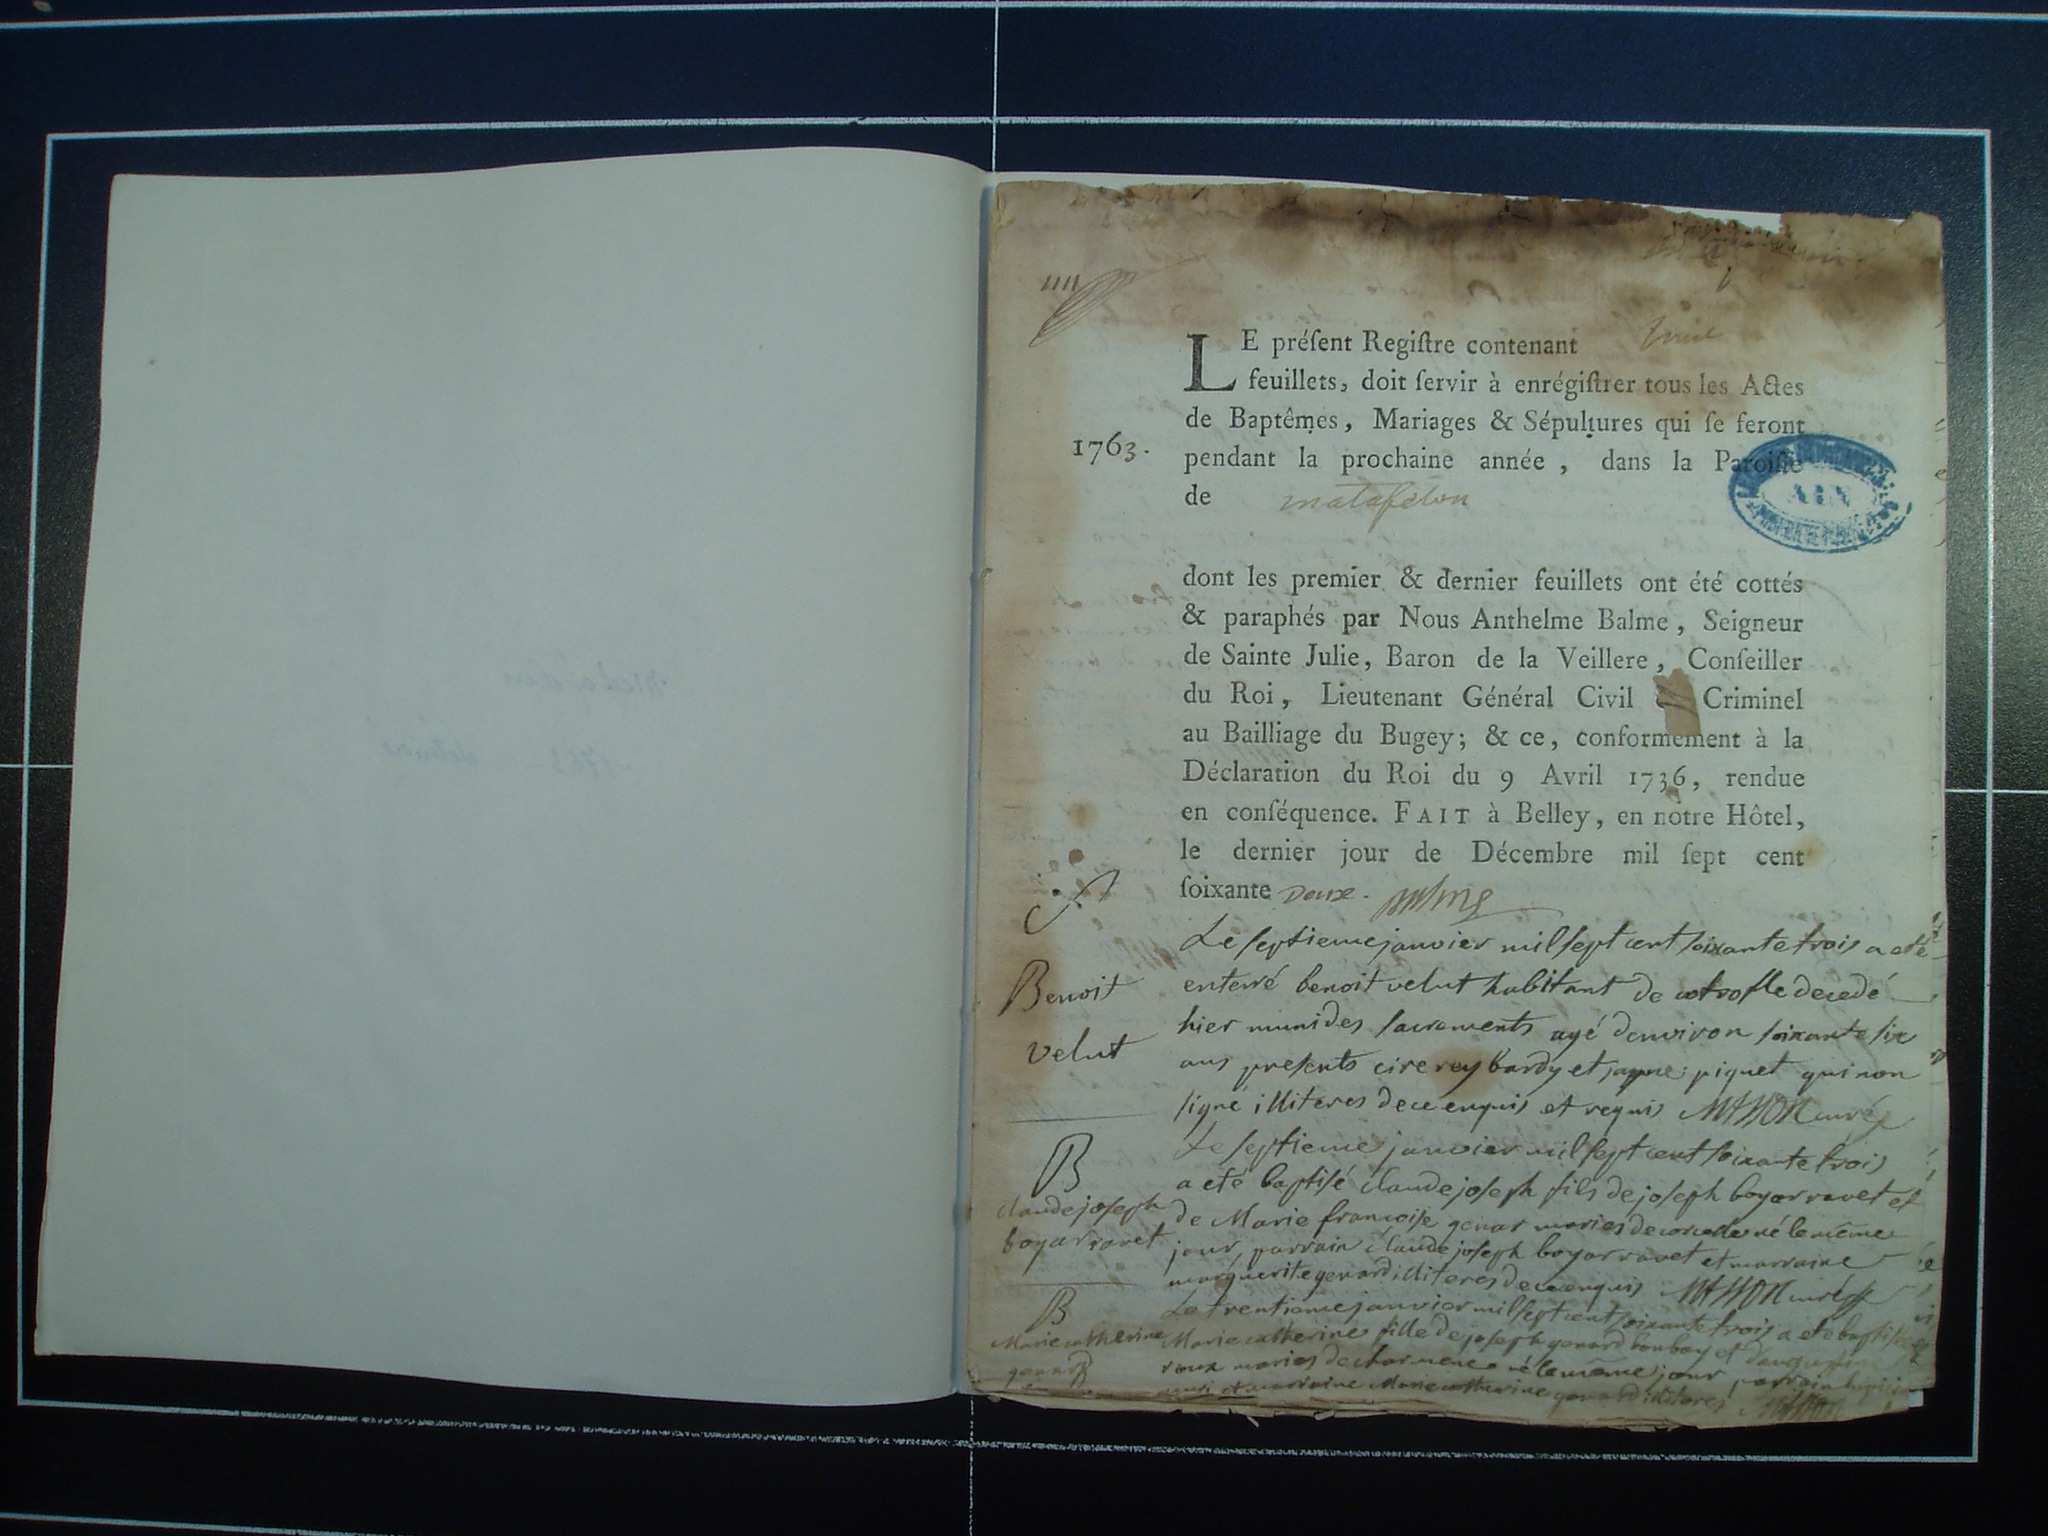 LE préſent Regiſtre contenant
feuillets, doit ſervir à enrégiſtrer tous les Actes
de Baptêmes, Mariages & Sépultures qui ſe feront
1763.
pendant la prochaine année, dans la Paroiſſe
de matafelon
AIN
dont les premier & dernier feuillets ont été cottés
& paraphés par Nous Anthelme Balme, Seigneur
de Sainte Julie, Baron de la Veillere, Conſeiller
du Roi, Lieutenant Général Civil Criminel
au Bailliage du Bugey; & ce, conformément à la
Déclaration du Roi du 9 Avril 1736, rendue
en conſéquence. FAIT à Belley, en notre Hôtel,
le dernier jour de Décembre mil ſept cent
ſoixante Deux.
Le septieme janvier mil sept cent soixante trois a eté
Benoit
enterré benoit velut habitant de decedé
hier muni des sacrements agé denviron soixante six
velut
ans presents reybardy et piquet qui non
signé illiteres de ce enquis et requis curé
Le septieme janvier mil sept cent soixante trois
B
a eté baptisé claude joseph fils de joseph boyarravet et
claude joseph
de Marie françoise genar maries de né le même
boyarravet
jour, parrain claude joseph boyarravet et marraine
marguerite genard illiteres de ce enquis curé
B
Le trentieme janvier mil sept cent soixante trois a eté baptisé
Marie catherine
Marie catherine fille de joseph genard et
genard
roux maries de né le même jour, parrain
et marraine Marie catherine genard illiteres